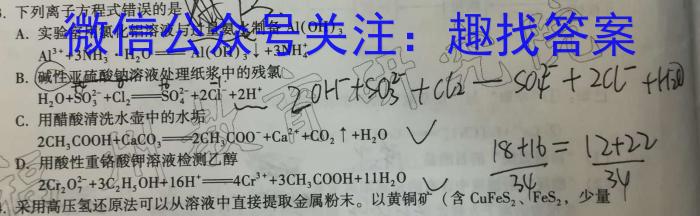 下列离子方程式错误的是
微信公众号关注：趣找答案
A. 实验室用氯化铝溶液与过量氨水制备Al(OH)₃
Al³⁺+3NH₃ H₂O══Al(OH)₃↓+3NH₄⁺
B. 碱性亚硫酸钠溶液处理纸浆中的残氯
H₂O+SO₃²⁻+Cl₂══SO₄²⁻+2Cl⁻+2H⁺
2OH⁻+SO₃²⁻+Cl₂—SO₄²⁻+2Cl⁻+H₂O
C. 用醋酸清洗水壶中的水垢
2CH₃COOH+CaCO₃══2CH₃COO⁻+Ca²⁺+CO₂↑+H₂O
D. 用酸性重铬酸钾溶液检测乙醇
2Cr₂O₇²⁻+3C₂H₅OH+16H⁺══4Cr³⁺+3CH₃COOH+11H₂O
18+16 = 12+22
34 34
采用高压氢还原法可以从溶液中直接提取金属粉末。以黄铜矿（含 CuFeS₂、FeS₂，少量